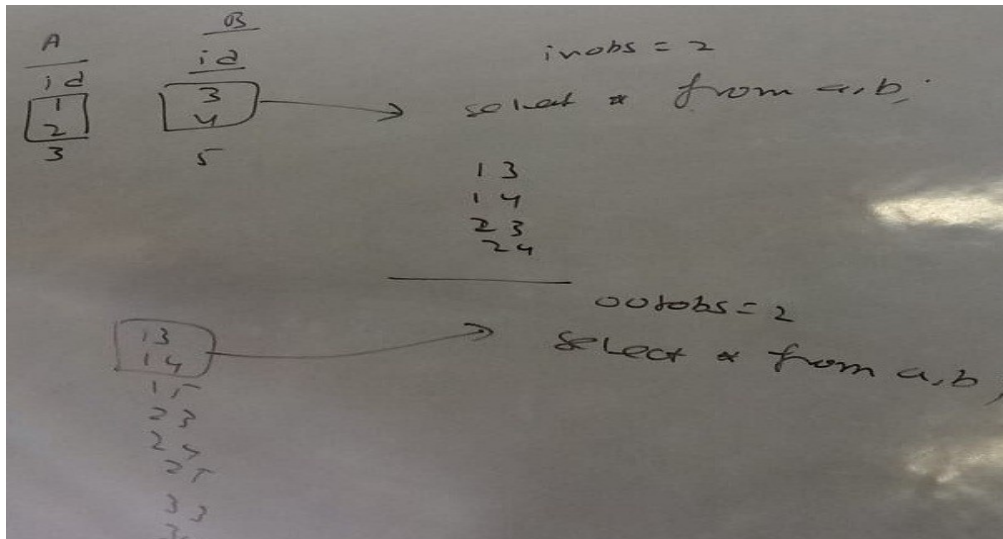 A
id
1
2
3
B
id
3
4
5
inobs = 2
select * from a,b;
1 3
1 4
2 3
2 4
outobs = 2
select * from a,b,
1 3
1 4
1 5
2 3
2 4
2 5
3 3